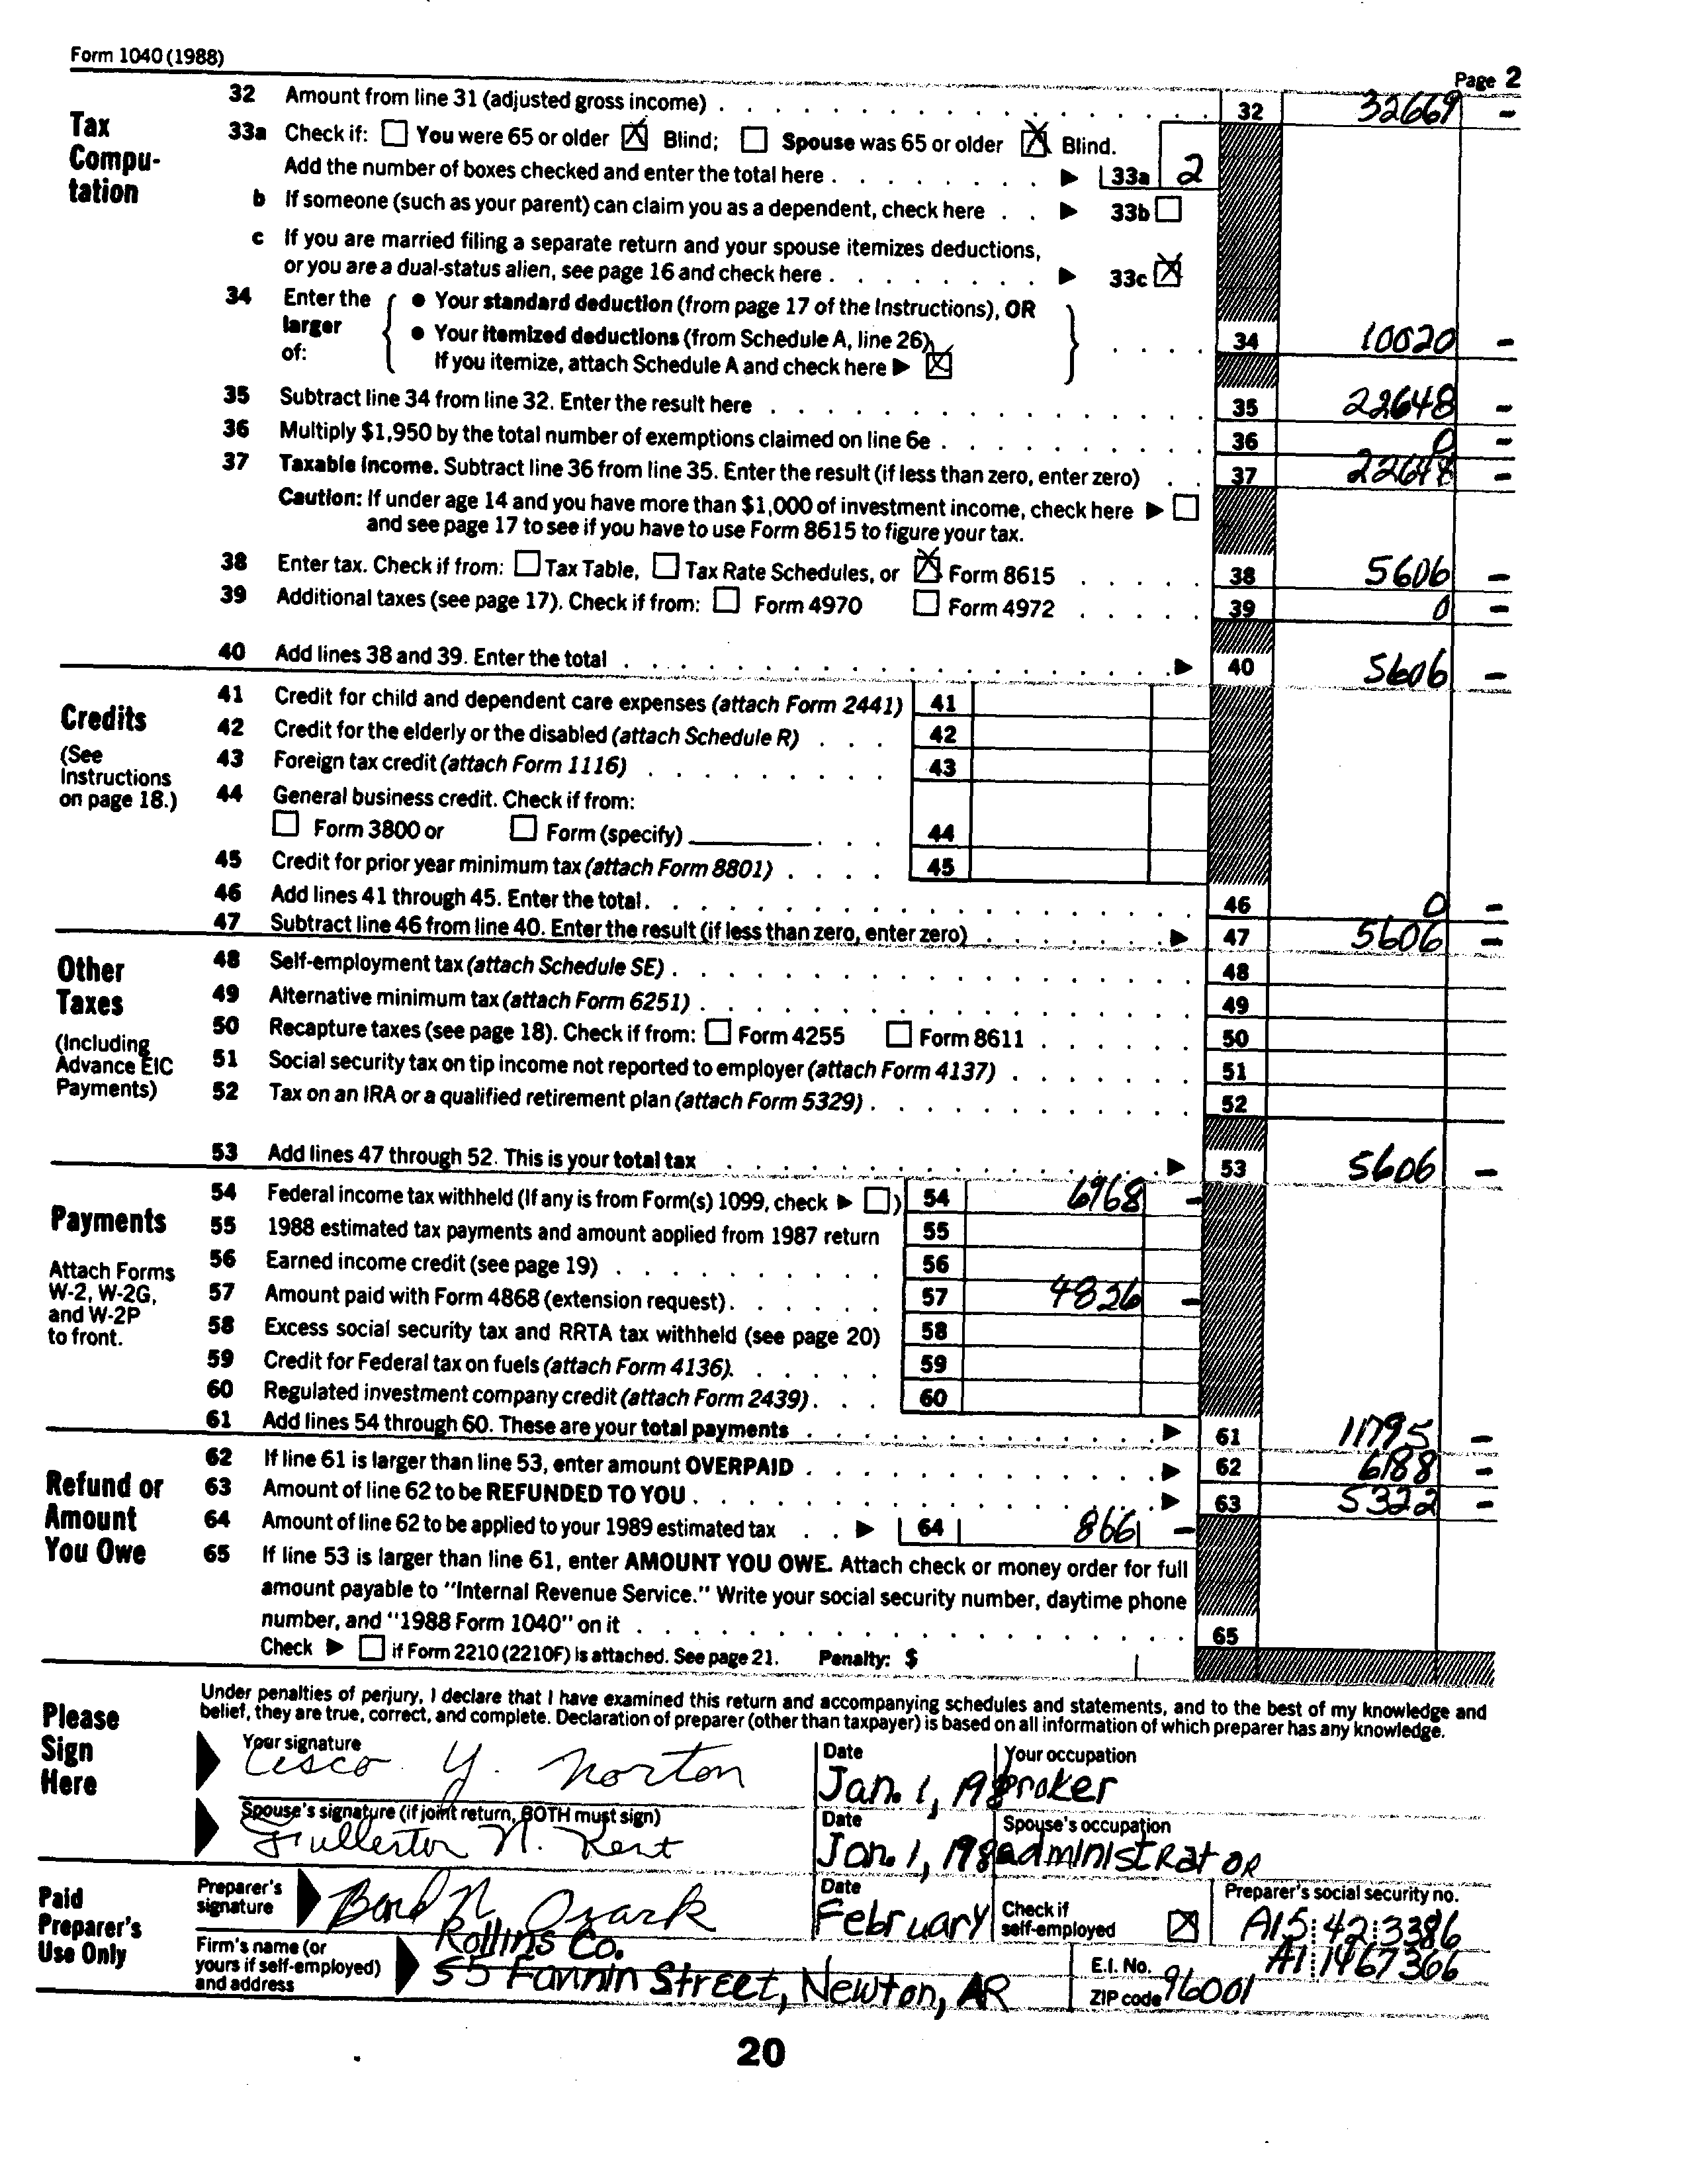 Form 1040 (1988)
Page 2
Tax Compu-tation
32 Amount from line 31 (adjusted gross income) 32 32669 -
33a Check if: You were 65 or older X Blind; Spouse was 65 or older X Blind.
Add the number of boxes checked and enter the total here 33a 2
b If someone (such as your parent) can claim you as a dependent, check here 33b
c If you are married filing a separate return and your spouse itemizes deductions,
or you are a dual-status alien, see page 16 and check here 33c X
34 Enter the larger of:
• Your standard deduction (from page 17 of the Instructions), OR
• Your itemized deductions (from Schedule A, line 26) 34 10020 -
If you itemize, attach Schedule A and check here X
35 Subtract line 34 from line 32. Enter the result here 35 22648 -
36 Multiply $1,950 by the total number of exemptions claimed on line 6e 36 0 -
37 Taxable income. Subtract line 36 from line 35. Enter the result (if less than zero, enter zero) 37 22648 -
Caution: If under age 14 and you have more than $1,000 of investment income, check here
and see page 17 to see if you have to use Form 8615 to figure your tax.
38 Enter tax. Check if from: Tax Table, Tax Rate Schedules, or X Form 8615 38 5606 -
39 Additional taxes (see page 17). Check if from: Form 4970 Form 4972 39 0 -
40 Add lines 38 and 39. Enter the total 40 5606 -
Credits
(See Instructions on page 18.)
41 Credit for child and dependent care expenses (attach Form 2441) 41
42 Credit for the elderly or the disabled (attach Schedule R) 42
43 Foreign tax credit (attach Form 1116) 43
44 General business credit. Check if from:
Form 3800 or Form (specify) 44
45 Credit for prior year minimum tax (attach Form 8801) 45
46 Add lines 41 through 45. Enter the total 46 0 -
47 Subtract line 46 from line 40. Enter the result (if less than zero, enter zero) 47 5606 -
Other Taxes
(Including Advance EIC Payments)
48 Self-employment tax (attach Schedule SE) 48
49 Alternative minimum tax (attach Form 6251) 49
50 Recapture taxes (see page 18). Check if from: Form 4255 Form 8611 50
51 Social security tax on tip income not reported to employer (attach Form 4137) 51
52 Tax on an IRA or a qualified retirement plan (attach Form 5329) 52
53 Add lines 47 through 52. This is your total tax 53 5606 -
Payments
Attach Forms W-2, W-2G, and W-2P to front.
54 Federal income tax withheld (If any is from Form(s) 1099, check ) 54 6968 -
55 1988 estimated tax payments and amount applied from 1987 return 55
56 Earned income credit (see page 19) 56
57 Amount paid with Form 4868 (extension request) 57 4826 -
58 Excess social security tax and RRTA tax withheld (see page 20) 58
59 Credit for Federal tax on fuels (attach Form 4136) 59
60 Regulated investment company credit (attach Form 2439) 60
61 Add lines 54 through 60. These are your total payments 61 11795 -
Refund or Amount You Owe
62 If line 61 is larger than line 53, enter amount OVERPAID 62 6188 -
63 Amount of line 62 to be REFUNDED TO YOU 63 5322 -
64 Amount of line 62 to be applied to your 1989 estimated tax 64 866 -
65 If line 53 is larger than line 61, enter AMOUNT YOU OWE. Attach check or money order for full
amount payable to "Internal Revenue Service." Write your social security number, daytime phone
number, and "1988 Form 1040" on it 65
Check if Form 2210 (2210F) is attached. See page 21. Penalty: $
Please Sign Here
Under penalties of perjury, I declare that I have examined this return and accompanying schedules and statements, and to the best of my knowledge and
belief, they are true, correct, and complete. Declaration of preparer (other than taxpayer) is based on all information of which preparer has any knowledge.
Your signature Date Your occupation
Cesco Y. Norton Jan. 1, 198 broker
Spouse's signature (if joint return, BOTH must sign) Date Spouse's occupation
Fullerton N. Kent Jan. 1, 198 administrator
Paid Preparer's Use Only
Preparer's signature Date Check if self-employed X Preparer's social security no.
N Ozark February A15:42:3386
Firm's name (or yours if self-employed) and address
Rollins Co. E.I. No. A1:1467366
55 Fannin Street, Newton, AR ZIP code 96001
20